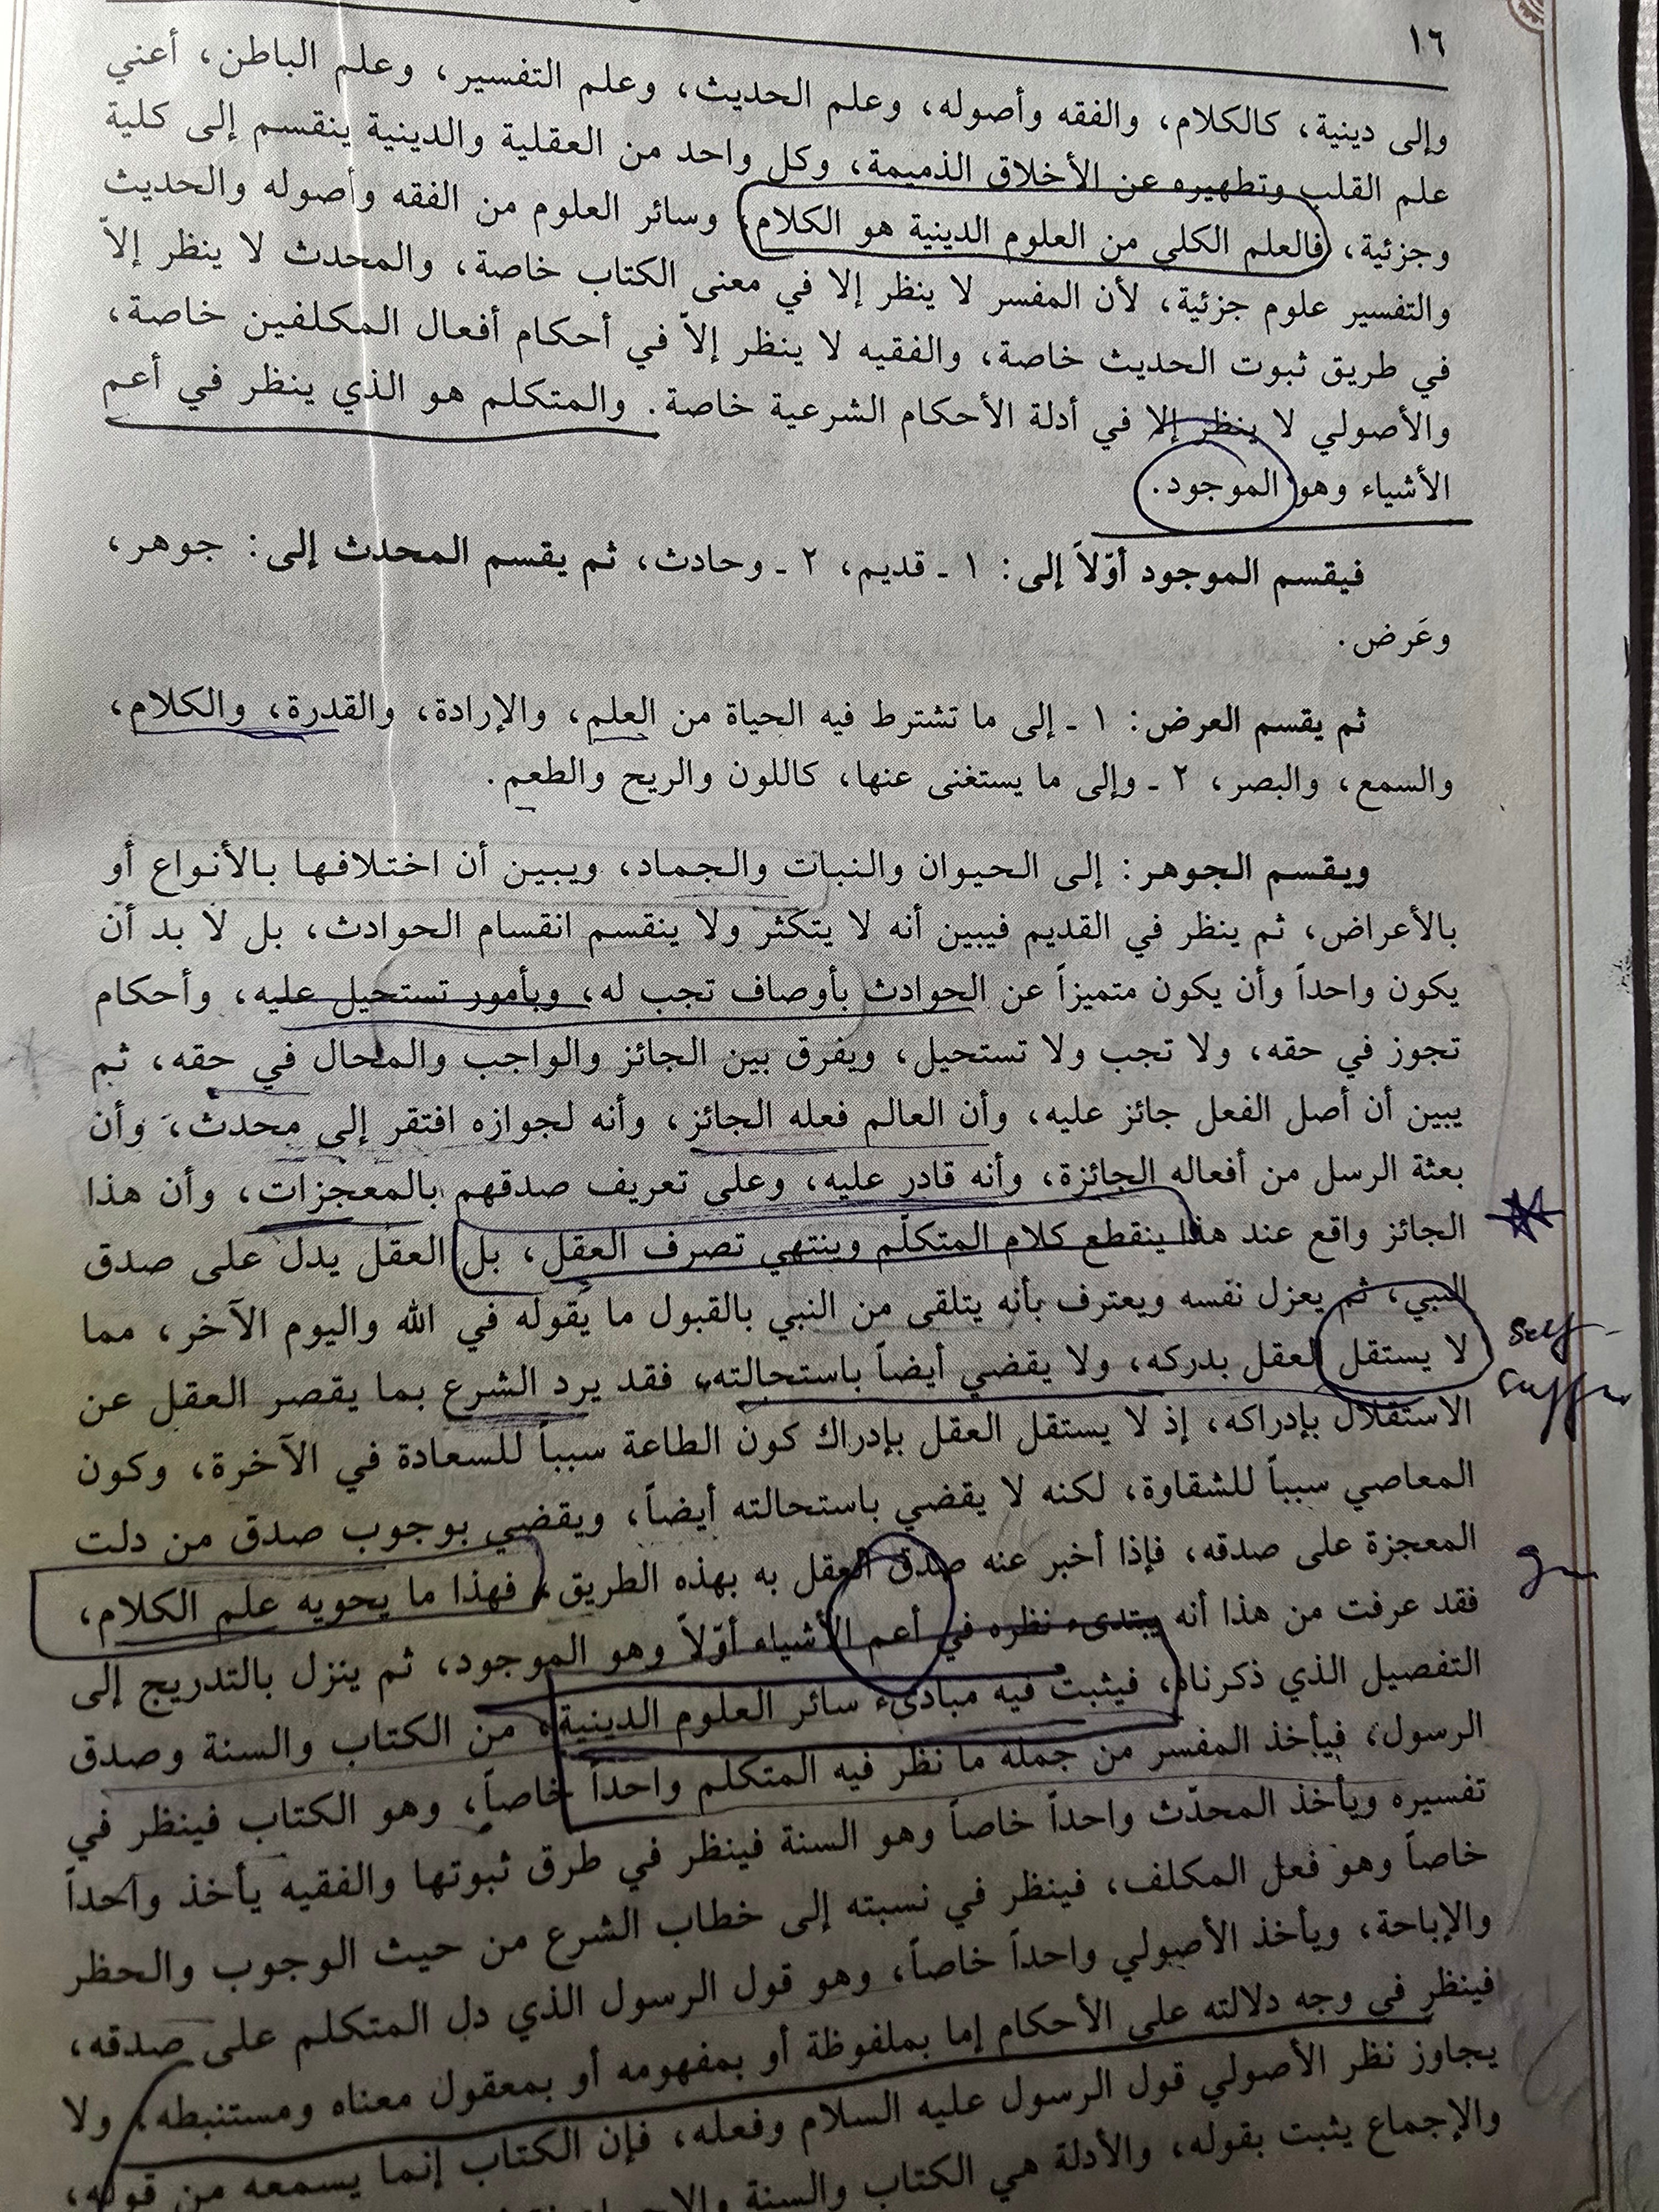 ١٦
وإلى دينية، كالكلام، والفقه وأصوله، وعلم الحديث، وعلم التفسير، وعلم الباطن، أعني
علم القلب وتطهيره عن الأخلاق الذميمة، وكل واحد من العقلية والدينية ينقسم إلى كلية
وجزئية، فالعلم الكلي من العلوم الدينية هو الكلام، وسائر العلوم من الفقه وأصوله والحديث
والتفسير علوم جزئية، لأن المفسر لا ينظر إلا في معنى الكتاب خاصة، والمحدث لا ينظر إلاّ
في طريق ثبوت الحديث خاصة، والفقيه لا ينظر إلاّ في أحكام أفعال المكلفين خاصة،
والأصولي لا ينظر إلا في أدلة الأحكام الشرعية خاصة. والمتكلم هو الذي ينظر في أعم
الأشياء وهو الموجود.
فيقسم الموجود أوّلاً إلى: ١ ـ قديم، ٢ ـ وحادث، ثم يقسم المحدث إلى: جوهر،
وعَرض.
ثم يقسم العرض: ١ ـ إلى ما تشترط فيه الحياة من العلم، والإرادة، والقدرة، والكلام،
والسمع، والبصر، ٢ ـ وإلى ما يستغنى عنها، كاللون والريح والطعم.
ويقسم الجوهر: إلى الحيوان والنبات والجماد، ويبين أن اختلافها بالأنواع أو
بالأعراض، ثم ينظر في القديم فيبين أنه لا يتكثر ولا ينقسم انقسام الحوادث، بل لا بد أن
يكون واحداً وأن يكون متميزاً عن الحوادث بأوصاف تجب له، وبأمور تستحيل عليه، وأحكام
تجوز في حقه، ولا تجب ولا تستحيل، ويفرق بين الجائز والواجب والمحال في حقه، ثم
يبين أن أصل الفعل جائز عليه، وأن العالم فعله الجائز، وأنه لجوازه افتقر إلى محدث، وأن
بعثة الرسل من أفعاله الجائزة، وأنه قادر عليه، وعلى تعريف صدقهم بالمعجزات، وأن هذا
الجائز واقع عند هذا ينقطع كلام المتكلّم وينتهي تصرف العقل، بل العقل يدل على صدق
النبي، ثم يعزل نفسه ويعترف بأنه يتلقى من النبي بالقبول ما يقوله في الله واليوم الآخر، مما
لا يستقل العقل بدركه، ولا يقضي أيضاً باستحالته، فقد يرد الشرع بما يقصر العقل عن
self-
الاستقلال بإدراكه، إذ لا يستقل العقل بإدراك كون الطاعة سبباً للسعادة في الآخرة، وكون
المعاصي سبباً للشقاوة، لكنه لا يقضي باستحالته أيضاً، ويقضي بوجوب صدق من دلت
المعجزة على صدقه، فإذا أخبر عنه صدق العقل به بهذه الطريق، فهذا ما يحويه علم الكلام،
فقد عرفت من هذا أنه يبتدىء نظره في أعم الأشياء أوّلاً وهو الموجود، ثم ينزل بالتدريج إلى
التفصيل الذي ذكرناه، فيثبت فيه مبادىء سائر العلوم الدينية، من الكتاب والسنة وصدق
الرسول، فيأخذ المفسر من جملة ما نظر فيه المتكلم واحداً خاصاً، وهو الكتاب فينظر في
تفسيره ويأخذ المحدّث واحداً خاصاً وهو السنة فينظر في طرق ثبوتها والفقيه يأخذ واحداً
خاصاً وهو فعل المكلف، فينظر في نسبته إلى خطاب الشرع من حيث الوجوب والحظر
والإباحة، ويأخذ الأصولي واحداً خاصاً، وهو قول الرسول الذي دل المتكلم على صدقه،
فينظر في وجه دلالته على الأحكام إما بملفوظة أو بمفهومه أو بمعقول معناه ومستنبطه، ولا
يجاوز نظر الأصولي قول الرسول عليه السلام وفعله، فإن الكتاب إنما يسمعه من قوله،
والإجماع يثبت بقوله، والأدلة هي الكتاب والسنة والإجماع